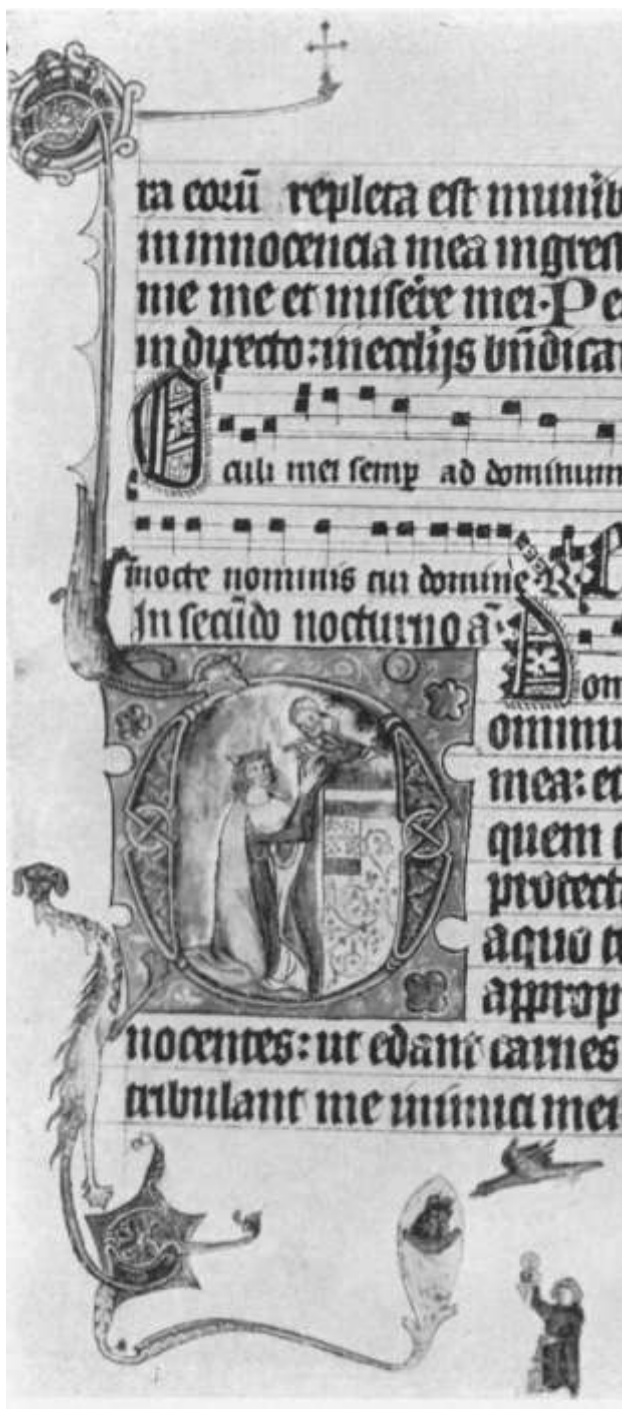 ra eorū repleta est munib
in innocencia mea ingres
me me et misere mei · Pe
in directo: in ecclijs bn̄dica
Oculi mei semp ad dominum
in nocte nominis tui domine R.
In secūdo nocturno a
Dom
ominu
mea: et
quem
protect
a quo t
approp
nocentes: ut edant carnes
tribulant me inimici mei